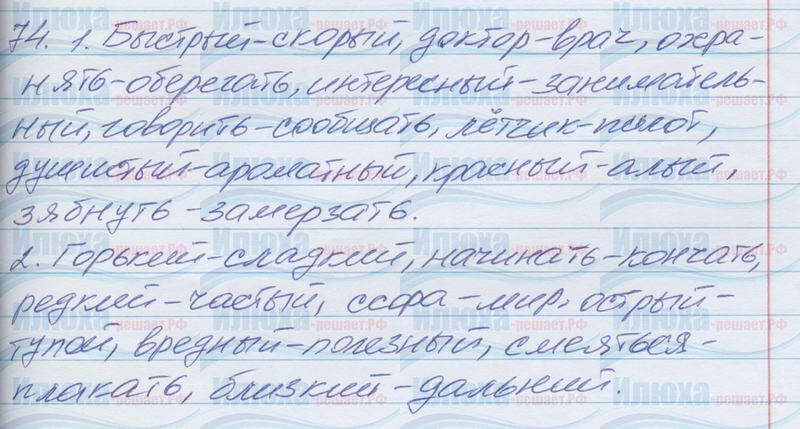 74. 1. Быстрый-скорый, доктор-врач, охра-
нять-оберегать, интересный-заниматель-
ный, говорить-сообщать, лётчик-пилот,
душистый-ароматный, красный-алый,
зябнуть-замерзать.
2. Горький-сладкий, начинать-кончать,
редкий-частый, ссора-мир, острый-
тупой, вредный-полезный, смеяться-
плакать, близкий-дальний.
Илюха-решает.РФ